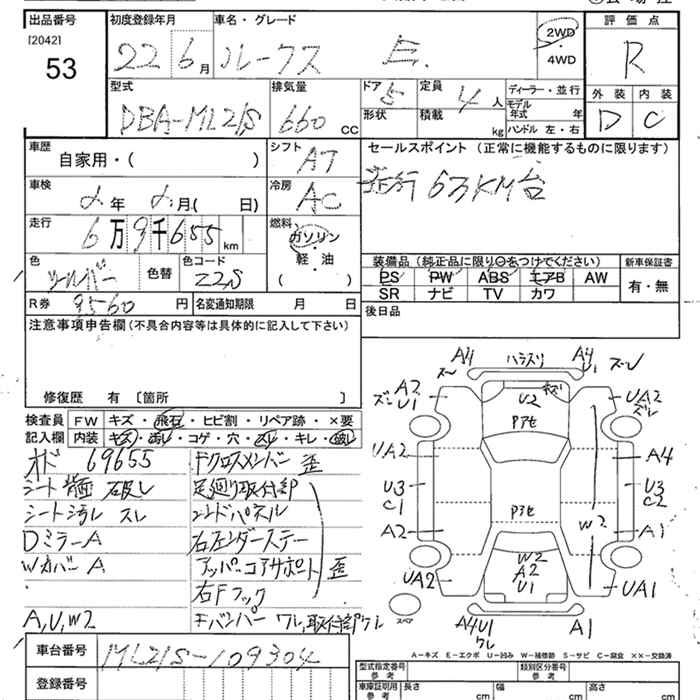 出品番号 初度登録年月 車名・グレード 評価点
[2042] 53 22 6月 ルークス E. 2WD 4WD R
型式 排気量 ドア 5 定員 4人 ディーラー・並行 外装 内装
DBA-ML21S 660 CC 形状 積載 kg モデル年式 年 ハンドル 左・右 D C
車歴 シフト セールスポイント (正常に機能するものに限ります)
自家用・( ) AT 走行 63KM台
車検 2年 2月( 日) 冷房 AC
走行 6万9千655km 燃料 ガソリン
色 シルバー 色替 色コード Z2S 軽・油 ( )
装備品 (純正品に限り○をつけてください) 新車保証書
PS PW ABS エアB AW 有・無
SR ナビ TV カワ
R券 9560円 名変通知期限 月 日 後日品
注意事項申告欄 (不具合内容等は具体的に記入して下さい)
修復歴 有 [箇所 ]
検査員 FW キズ・飛石・ヒビ割・リペア跡・×要
記入欄 内装 キズ・汚レ・コゲ・穴・スレ・キレ・破レ
オド 69655 Fクロスメンバー 歪
シート背面 破レ 足廻り取付部
シート汚レ スレ コンドパネル
Dミラー A 右左ンダーステー
Wカバー A アッパーコアサポート 歪
右Fフック
A,U,W2 Fバンパー ワレ,取付部ワレ
A4 ハラスリ A4 U1
A2 U1 U2 キズ UA2
Pアセ
UA2 A4
U3 C1 U3 C2
Pアセ
A2 W2 A1
W2
UA2 A2 U1 UA1
スペア A4U1 ワレ A1
A-キズ E-エクボ U-凹み W-補修跡 S-サビ C-腐食 ××-交換済
車台番号 ML21S-109304
登録番号
型式指定番号 参考 類別区分番号 参考
車庫証明用 参考 長さ cm 幅 cm 高さ cm